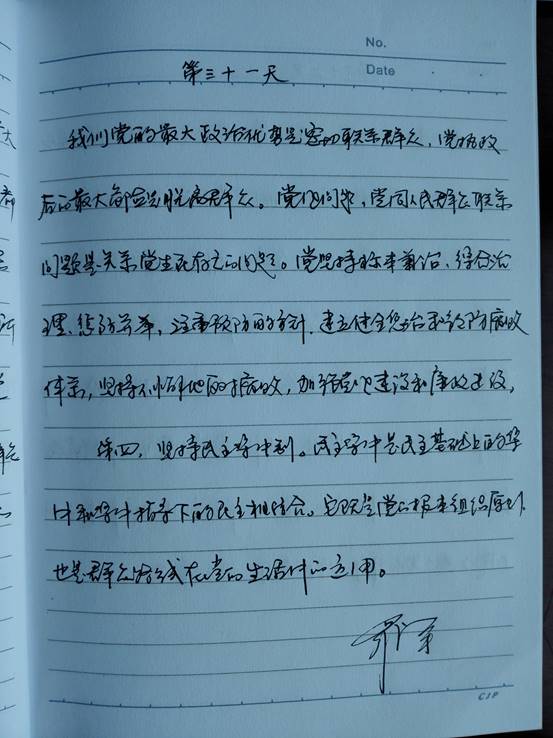 No.
第三十一天
Date
我们党的最大政治优势是密切联系群众，党执政
后的最大危险是脱离群众。党风问题，党同人民群众联系
问题是关系党生死存亡的问题。党坚持标本兼治、综合治
理、惩防并举、注重预防的方针，建立健全惩治和预防腐败
体系，坚持不懈地反对腐败，加强党风建设和廉政建设，
第四，坚持民主集中制。民主集中是民主基础上的集
中和集中指导下的民主相结合。它既是党的根本组织原则，
也是群众路线在党的生活中的运用。
CIP